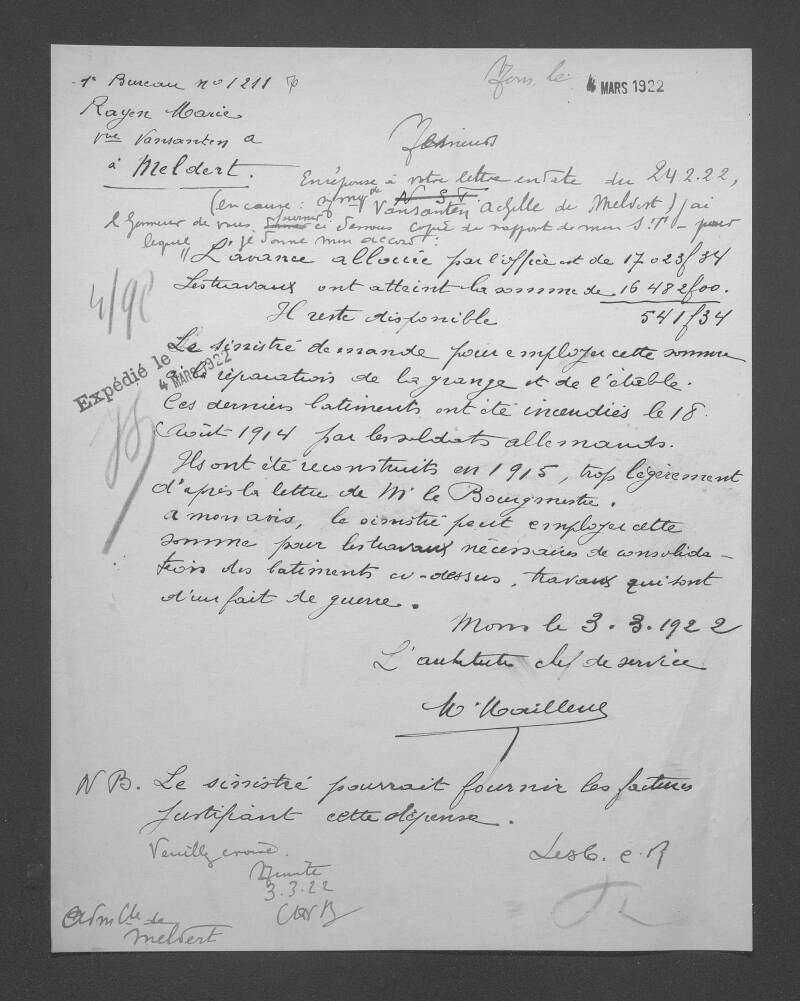 1r Bureau no 1211
Mons, le 4 MARS 1922
Rayen Marie
Vve Vansanten a
à Meldert.
Messieurs
En réponse à votre lettre en date du 24 2.22,
(en cause: Vansanten Achille de Meldert) j'ai
l'honneur de vous fournir ci dessous copie du rapport de mon S.T. - pour
lequel je donne mon accord:
"L'avance allouée par l'office est de 17023f34
Les travaux ont atteint la somme de 16482f00.
Il reste disponible 541f34
Le sinistré demande pour employer cette somme
à la réparation de la grange et de l'étable.
Expédié le
4 MARS 1922
Ces derniers batiments ont été incendiés le 18
Août 1914 par les soldats allemands.
Ils ont été reconstruits en 1915, trop légèrement
d'après la lettre de Mr le Bourgmestre.
A mon avis, le sinistré peut employer cette
somme pour les travaux nécessaires de consolida-
tion des batiments ci-dessus, travaux qui sont
d'un fait de guerre.
Mons le 3.3.1922
L'architecte chef de service
NB. Le sinistré pourrait fournir les factures
justifiant cette dépense.
Veuillez croire.
Minute
3.3.22
Adm Cle de
Meldert